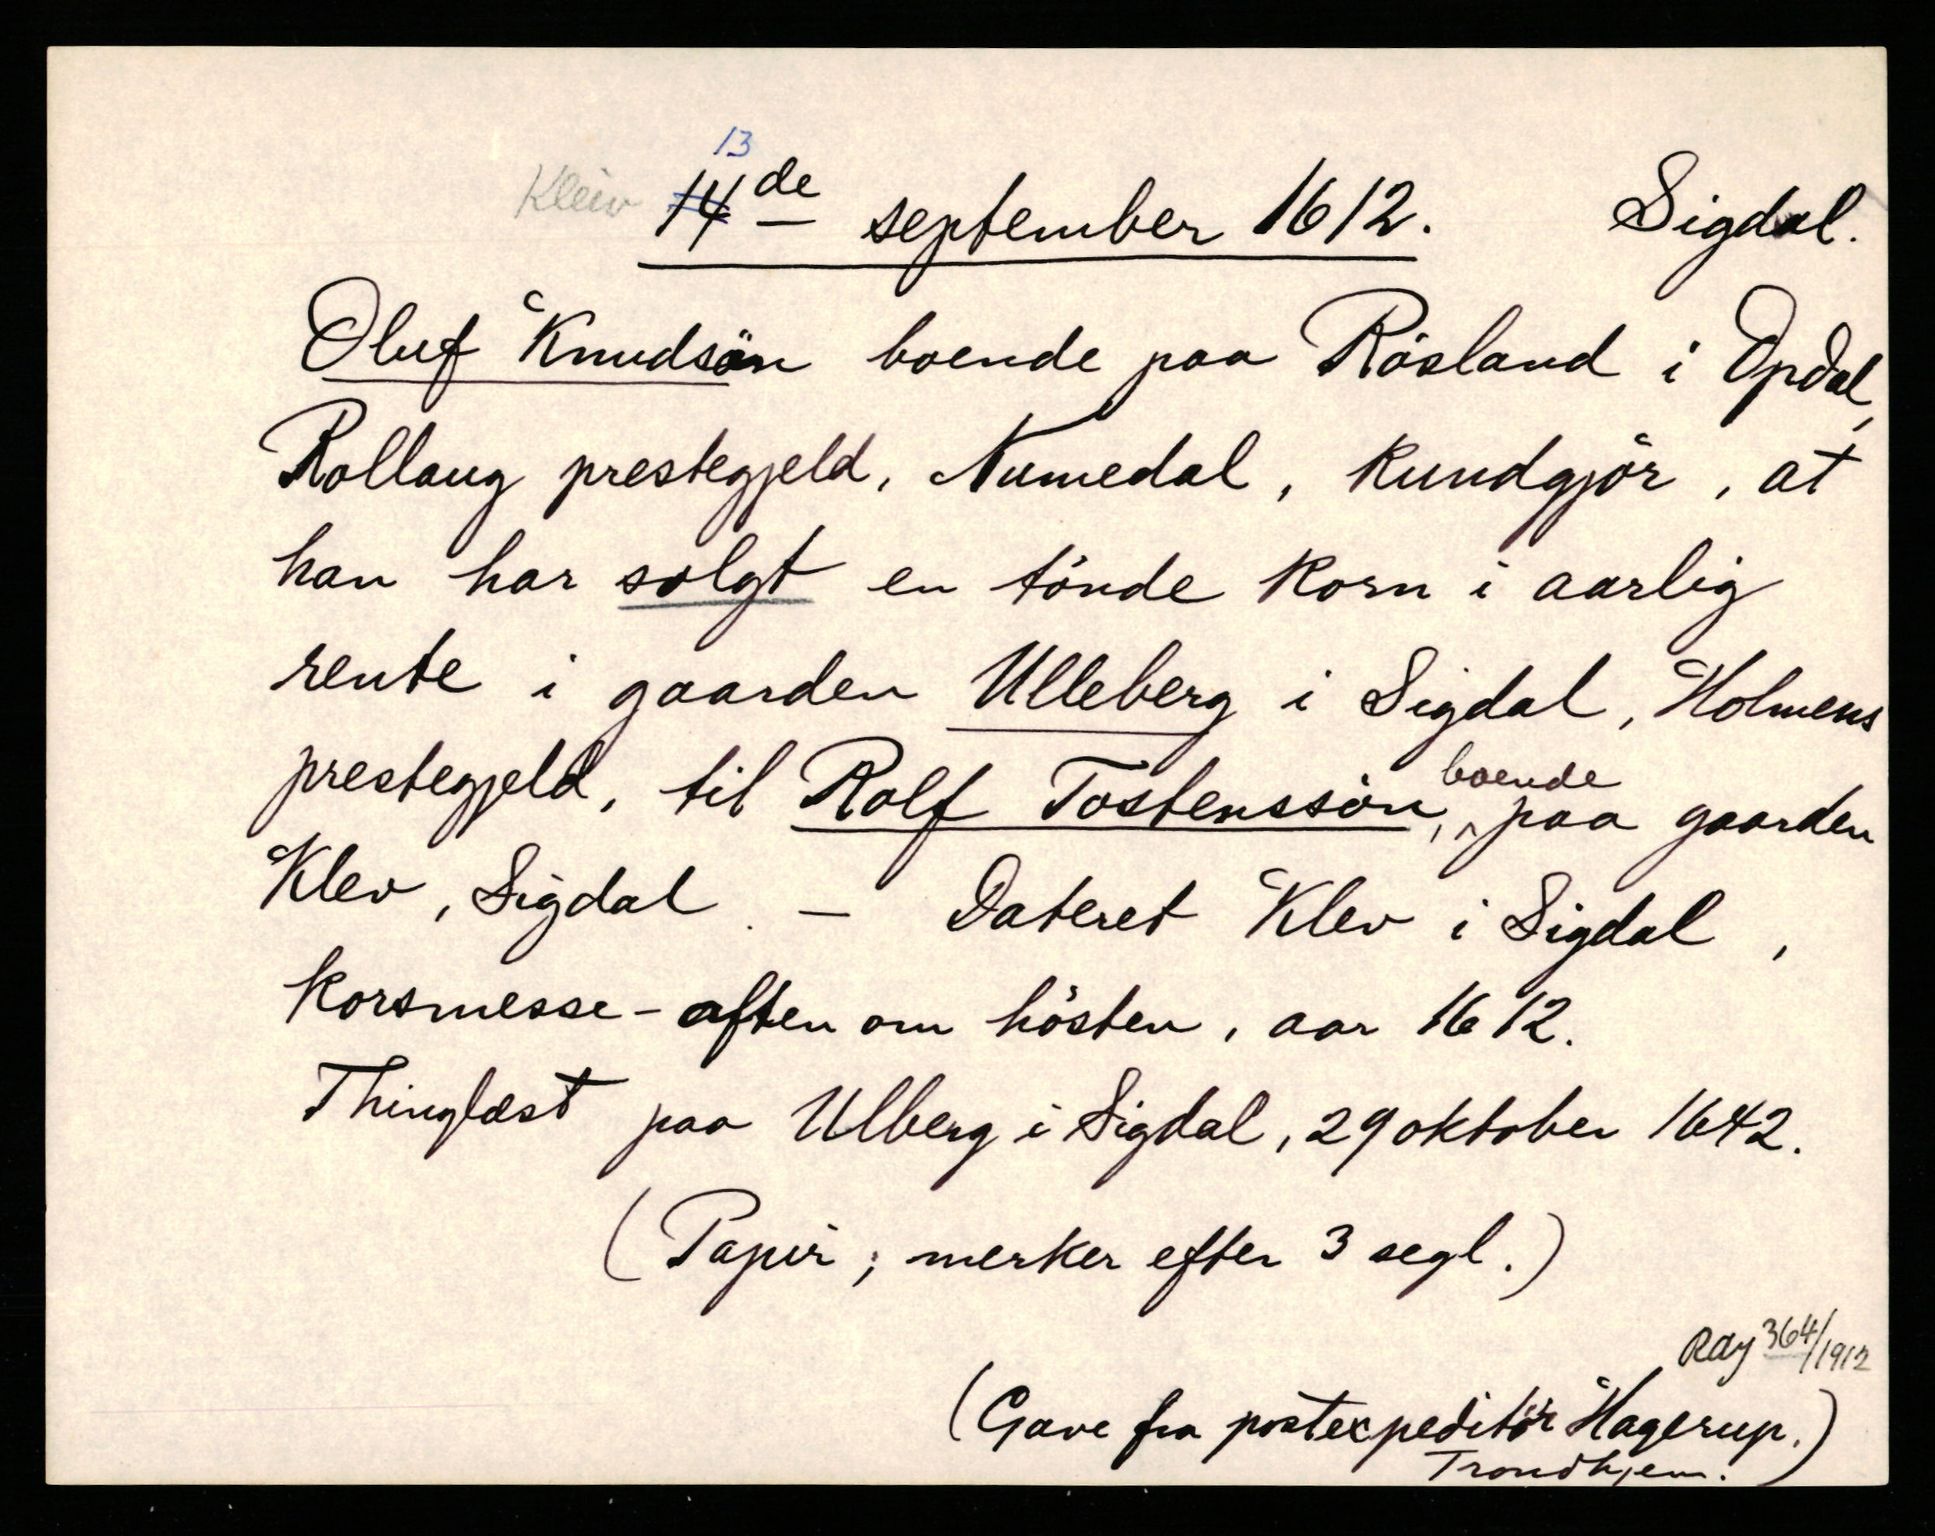 13
Kleiv 14de september 1612. Sigdal.
Oluf Knudsön boende paa Rösland i Opdal,
Rollaug prestegjeld, Numedal, kundgjör, at
han har solgt en tönde korn i aarlig
rente i gaarden Ulleberg i Sigdal, Holmens
prestegjeld, til Rolf Tostenssön, boende paa gaarden
Klev, Sigdal. — Dateret Klev i Sigdal,
korsmesse-aften om hösten, aar 1612.
Thinglæst paa Ulberg i Sigdal, 29 oktober 1642.
(Papir; merker efter 3 segl.)
364/1912
(Gave fra postexpeditör Hagerup.)
Trondhjem.